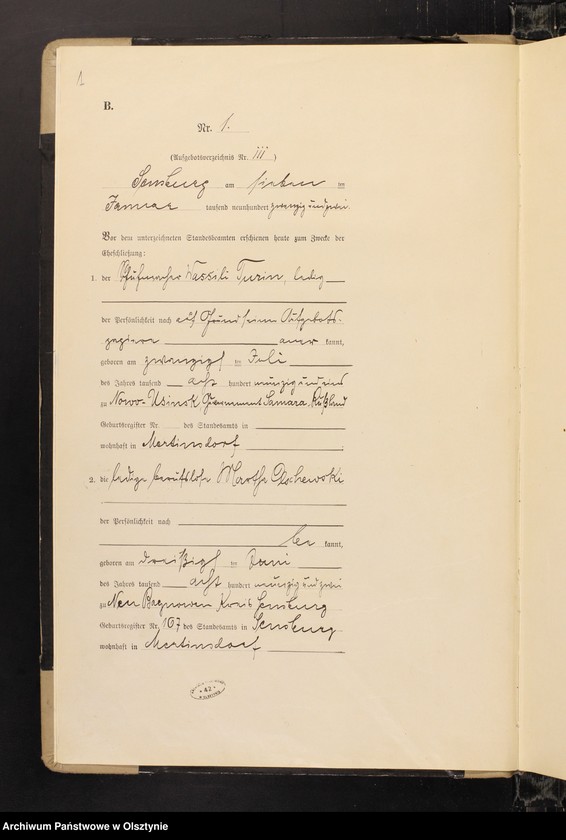 1
B.
Nr. 1.
(Aufgebotsverzeichnis Nr. III)
Sensburg am sieben ten
Januar tausend neunhundert zwanzig und zwei.
Vor dem unterzeichneten Standesbeamten erschienen heute zum Zwecke der
Eheschließung:
1. der Schuhmacher Wassili Turin, ledig
der Persönlichkeit nach auf Grund seiner Aufgebots-
papiere aner kannt,
geboren am zwanzigsten Juli
des Jahres tausend acht hundert neunzig und eins
zu Nowo-Usinsk, Gouvernement Samara, Rußland
Geburtsregister Nr. des Standesamts in
wohnhaft in Mertinsdorf
2. die ledige berufslose Martha Olschewski
der Persönlichkeit nach
be kannt,
geboren am dreißigsten Juni
des Jahres tausend acht hundert neunzig und zwei
zu Neu Bagnowen Kreis Sensburg
Geburtsregister Nr. 167 des Standesamts in Sensburg
wohnhaft in Mertinsdorf
42
Archiwum Państwowe w Olsztynie